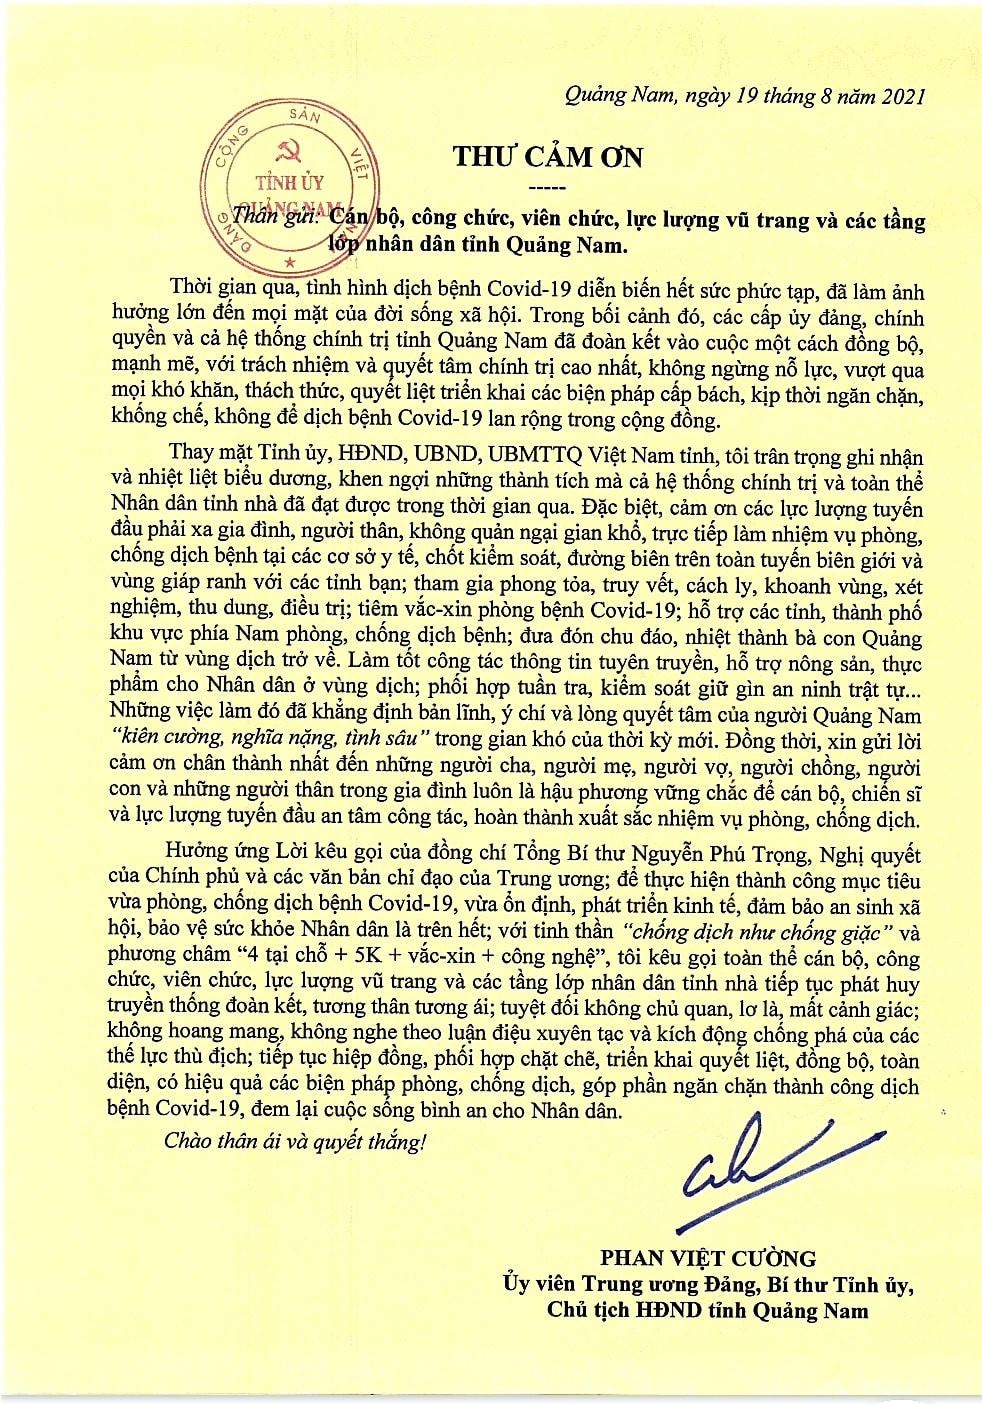 Quảng Nam, ngày 19 tháng 8 năm 2021
ĐẢNG CỘNG SẢN VIỆT NAM
TỈNH ỦY
QUẢNG NAM
THƯ CẢM ƠN
-----
Thân gửi: Cán bộ, công chức, viên chức, lực lượng vũ trang và các tầng
lớp nhân dân tỉnh Quảng Nam.
Thời gian qua, tình hình dịch bệnh Covid-19 diễn biến hết sức phức tạp, đã làm ảnh
hưởng lớn đến mọi mặt của đời sống xã hội. Trong bối cảnh đó, các cấp ủy đảng, chính
quyền và cả hệ thống chính trị tỉnh Quảng Nam đã đoàn kết vào cuộc một cách đồng bộ,
mạnh mẽ, với trách nhiệm và quyết tâm chính trị cao nhất, không ngừng nỗ lực, vượt qua
mọi khó khăn, thách thức, quyết liệt triển khai các biện pháp cấp bách, kịp thời ngăn chặn,
khống chế, không để dịch bệnh Covid-19 lan rộng trong cộng đồng.
Thay mặt Tỉnh ủy, HĐND, UBND, UBMTTQ Việt Nam tỉnh, tôi trân trọng ghi nhận
và nhiệt liệt biểu dương, khen ngợi những thành tích mà cả hệ thống chính trị và toàn thể
Nhân dân tỉnh nhà đã đạt được trong thời gian qua. Đặc biệt, cảm ơn các lực lượng tuyến
đầu phải xa gia đình, người thân, không quản ngại gian khổ, trực tiếp làm nhiệm vụ phòng,
chống dịch bệnh tại các cơ sở y tế, chốt kiểm soát, đường biên trên toàn tuyến biên giới và
vùng giáp ranh với các tỉnh bạn; tham gia phong tỏa, truy vết, cách ly, khoanh vùng, xét
nghiệm, thu dung, điều trị; tiêm vắc-xin phòng bệnh Covid-19; hỗ trợ các tỉnh, thành phố
khu vực phía Nam phòng, chống dịch bệnh; đưa đón chu đáo, nhiệt thành bà con Quảng
Nam từ vùng dịch trở về. Làm tốt công tác thông tin tuyên truyền, hỗ trợ nông sản, thực
phẩm cho Nhân dân ở vùng dịch; phối hợp tuần tra, kiểm soát giữ gìn an ninh trật tự...
Những việc làm đó đã khẳng định bản lĩnh, ý chí và lòng quyết tâm của người Quảng Nam
“kiên cường, nghĩa nặng, tình sâu” trong gian khó của thời kỳ mới. Đồng thời, xin gửi lời
cảm ơn chân thành nhất đến những người cha, người mẹ, người vợ, người chồng, người
con và những người thân trong gia đình luôn là hậu phương vững chắc để cán bộ, chiến sĩ
và lực lượng tuyến đầu an tâm công tác, hoàn thành xuất sắc nhiệm vụ phòng, chống dịch.
Hưởng ứng Lời kêu gọi của đồng chí Tổng Bí thư Nguyễn Phú Trọng, Nghị quyết
của Chính phủ và các văn bản chỉ đạo của Trung ương; để thực hiện thành công mục tiêu
vừa phòng, chống dịch bệnh Covid-19, vừa ổn định, phát triển kinh tế, đảm bảo an sinh xã
hội, bảo vệ sức khỏe Nhân dân là trên hết; với tinh thần “chống dịch như chống giặc” và
phương châm “4 tại chỗ + 5K + vắc-xin + công nghệ”, tôi kêu gọi toàn thể cán bộ, công
chức, viên chức, lực lượng vũ trang và các tầng lớp nhân dân tỉnh nhà tiếp tục phát huy
truyền thống đoàn kết, tương thân tương ái; tuyệt đối không chủ quan, lơ là, mất cảnh giác;
không hoang mang, không nghe theo luận điệu xuyên tạc và kích động chống phá của các
thế lực thù địch; tiếp tục hiệp đồng, phối hợp chặt chẽ, triển khai quyết liệt, đồng bộ, toàn
diện, có hiệu quả các biện pháp phòng, chống dịch, góp phần ngăn chặn thành công dịch
bệnh Covid-19, đem lại cuộc sống bình an cho Nhân dân.
Chào thân ái và quyết thắng!
PHAN VIỆT CƯỜNG
Ủy viên Trung ương Đảng, Bí thư Tỉnh ủy,
Chủ tịch HĐND tỉnh Quảng Nam